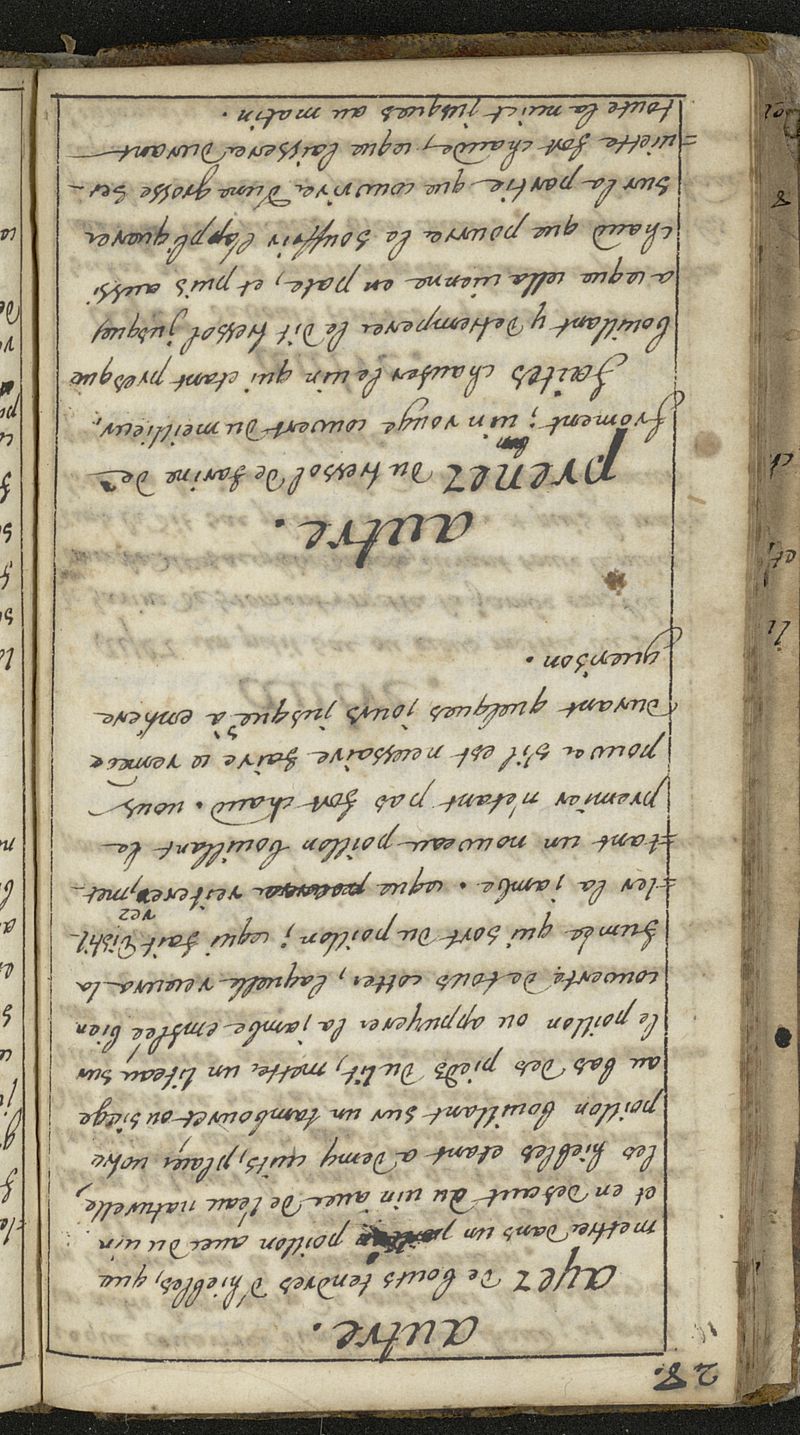 28.
autre.
ayez de bouts tendres d'hiebles, que
mettrez dans un poillon avec du vin
et en defaut du vin avec de l'eau naturelle,
les hiebles etant a demy cuits, placez votre
poillon bouillant sur un tambouret ou siege
au bas des pieds du lit, mettre un liteau sur
le poillon ou appuyerez la jambe emflée bien
couverte de tous cottez, laquelle recevra la
fumée qui sort du poillon; cequi fait
vez
=ler la jambe. ceque reiterez, met-
=tant un nouveau poillon bouillant le
premier n'etant pas fort chaud. vous
pouvez s'il est necessaire faire ce remede
durant quelques jours jusque a entiere
guerison.
autre.
prenez du tressol de farine de
froment; vin rouge couvert du meillieur,
faites chaufer le vin qui etant presque
bouillant y detremperez le dit tressol jusques
a ceque cella vienne en pate, et puis aussi
chaud que pourra le souffrir l'appliquerez
sur la partie que couvrirez d'une grosse ser-
=viette fort chaude, ceque laisserez durant
toute la nuict jusques au matin.